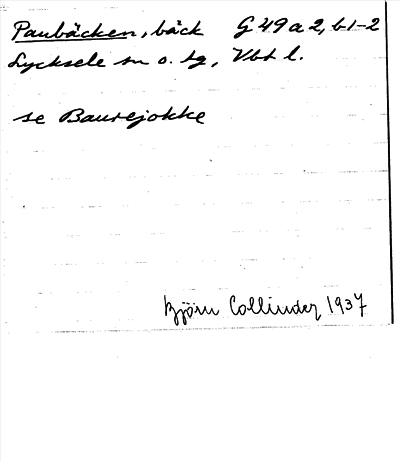 Paubäcken, bäck G 49 a 2, b 1-2
Lycksele sn o. tg, Vbt l.
se Baurejokke
Björn Collinder 1937